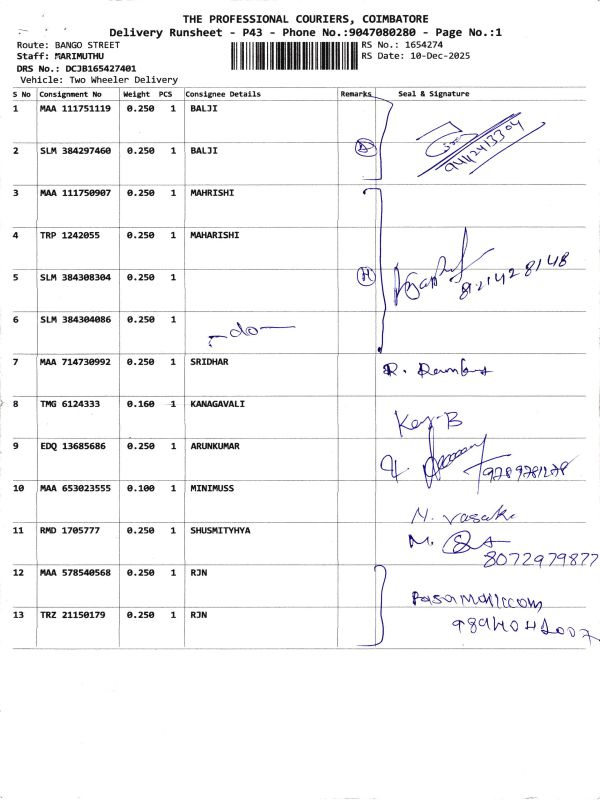 THE PROFESSIONAL COURIERS, COIMBATORE
Delivery Runsheet - P43 - Phone No.:9047080280 - Page No.:1
Route: BANGO STREET
RS No.: 1654274
Staff: MARIMUTHU
RS Date: 10-Dec-2025
DRS No.: DCJB165427401
Vehicle: Two Wheeler Delivery
S No Consignment No Weight PCS Consignee Details Remarks Seal & Signature
1 MAA 111751119 0.250 1 BALJI
9442413304
2 SLM 384297460 0.250 1 BALJI
3 MAA 111750907 0.250 1 MAHRISHI
4 TRP 1242055 0.250 1 MAHARISHI
5 SLM 384308304 0.250 1 H 8121428148
6 SLM 384304086 0.250 1 -do-
7 MAA 714730992 0.250 1 SRIDHAR R.
8 TMG 6124333 0.160 1 KANAGAVALI
9 EDQ 13685686 0.250 1 ARUNKUMAR 9789781278
10 MAA 653023555 0.100 1 MINIMUSS
11 RMD 1705777 0.250 1 SHUSMITYHYA M.
8072979877
12 MAA 578540568 0.250 1 RJN
13 TRZ 21150179 0.250 1 RJN